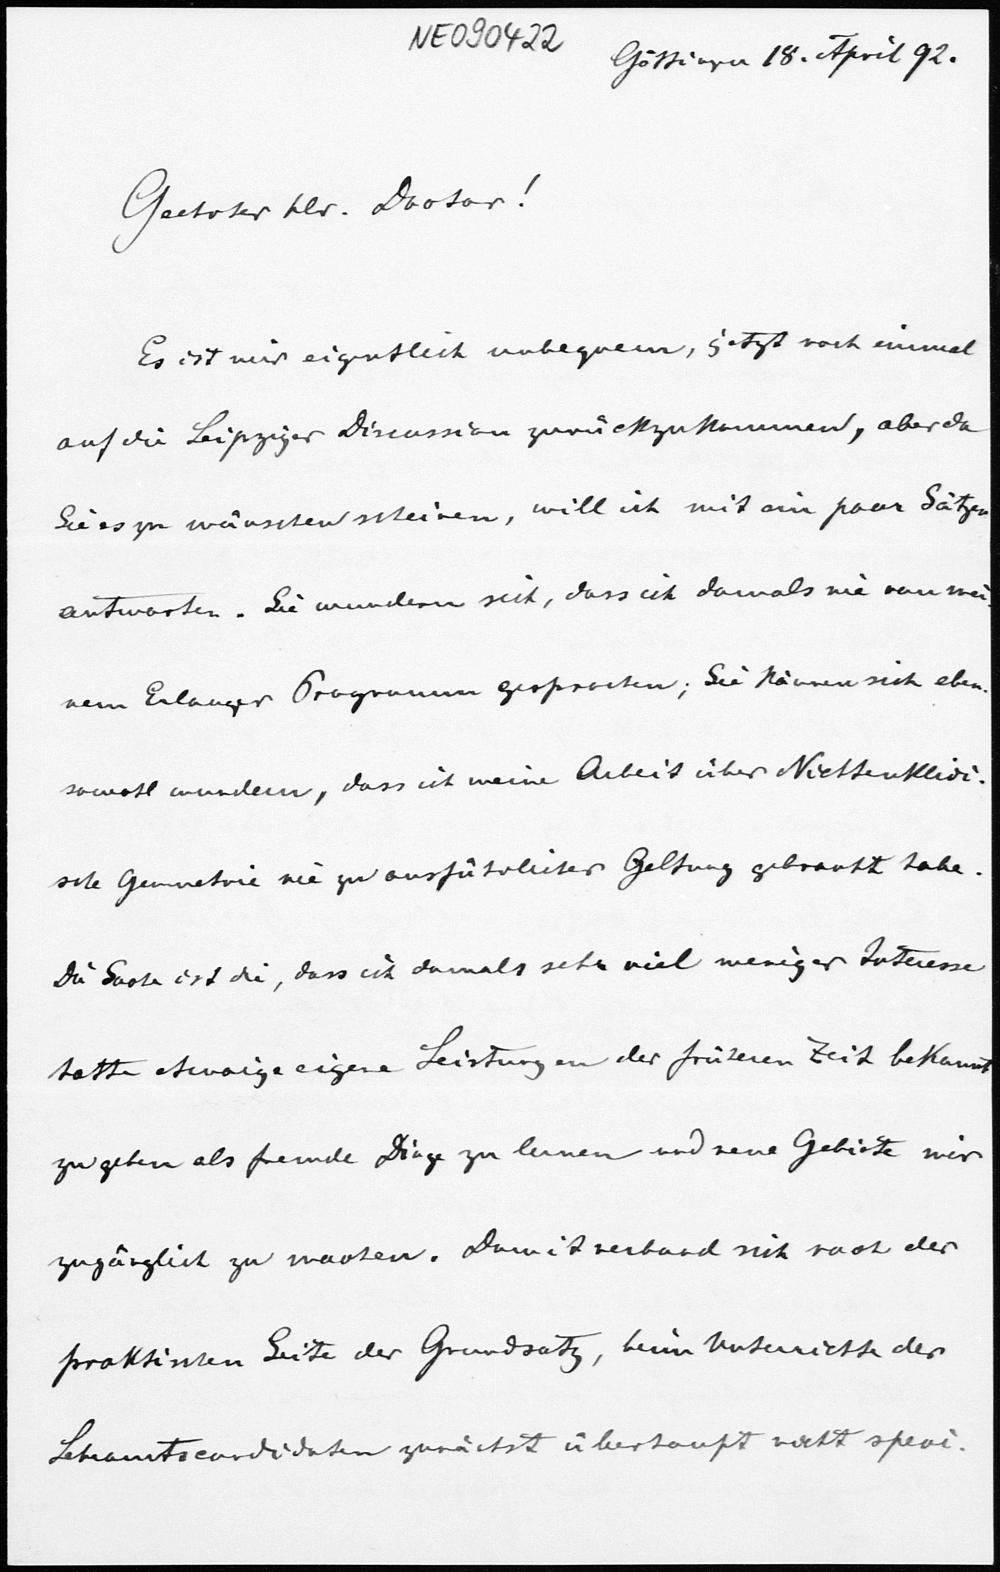 NE090422
Göttingen 18. April 92.
Geehrter Hr. Doctor!
Es ist mir eigentlich unbequem, jetzt noch einmal
auf die Leipziger Discussion zurückzukommen, aber da
Sie es zu wünschen scheinen, will ich mit ein paar Sätzen
antworten. Sie wundern sich, dass ich damals nie von mei-
nem Erlanger Programm gesprochen; Sie können sich eben-
sowohl wundern, dass ich meine Arbeit über Nichteuklidi-
sche Geometrie nie zu ausführlicher Geltung gebracht habe.
Die Sache ist die, dass ich damals sehr viel weniger Interesse
hatte etwaige eigene Leistungen der früheren Zeit bekannt
zu geben als fremde Dinge zu lernen und neue Gebiete mir
zugänglich zu machen. Damit verband sich nach der
praktischen Seite der Grundsatz, beim Unterrichte der
Lehramtscandidaten zunächst überhaupt nicht speci-